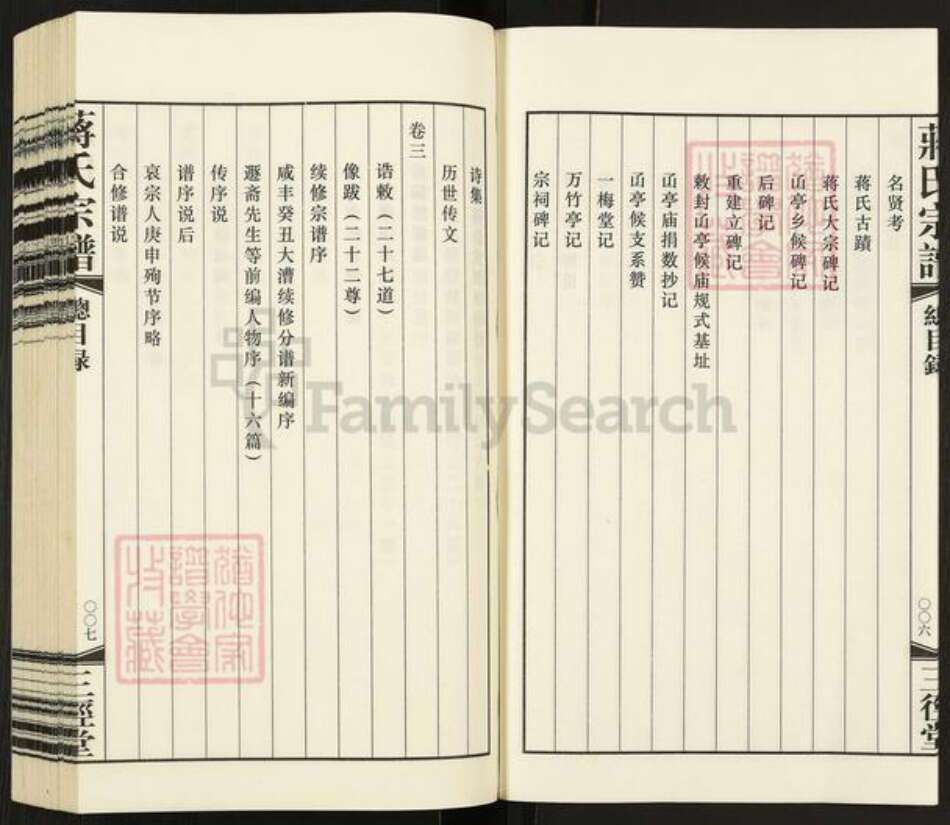 蔣氏宗譜
總目録
〇〇六
三徑堂
名贤考
蒋氏古蹟
蒋氏大宗碑记
凾亭乡候碑记
后碑记
重建立碑记
敕封凾亭候庙规式基址
凾亭庙捐数抄记
凾亭候支系赞
一梅堂记
万竹亭记
宗祠碑记
诗集
历世传文
卷三
诰敕（二十七道）
像跋（二十二尊）
续修宗谱序
咸丰癸丑大漕续修分谱新编序
遯斋先生等前编人物序（十六篇）
传序说
谱序说后
哀宗人庚申殉节序略
合修谱说
蔣氏宗譜
總目録
〇〇七
三徑堂
譜學會
收藏
FamilySearch